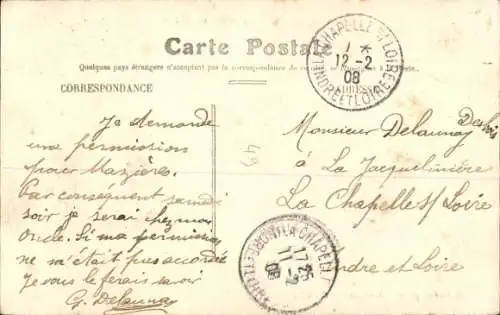 Carte Postale
Quelques pays étrangers n'acceptant pas la correspondance de
CORRESPONDANCE
Je demande
une permission
pour Mazières.
Par conséquent samedi
soir je serai chez mon
Oncle. Si ma permission
ne m'était pas accordée
je vous le ferais savoir
G. Delaunay
49
LA CHAPELLE S/ LOIRE
12 -2
08
INDRE ET LOIRE
Monsieur Delaunay
à La Jacquelinière
La Chapelle s/ Loire
Indre et Loire
LA CHAPELLE
17 25
11 -2
08